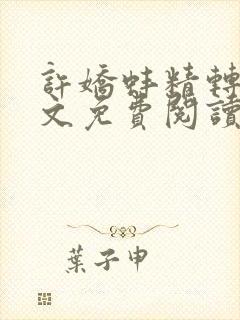 許嬌蚌精轉
文免費閱讀
葉子申